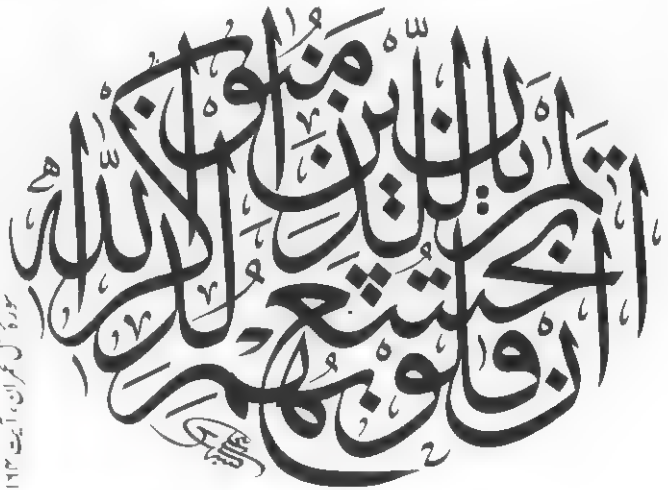 الم يان للذين امنوا
ان تخشع قلوبهم لذكر الله
سورہ آل عمران، آیت